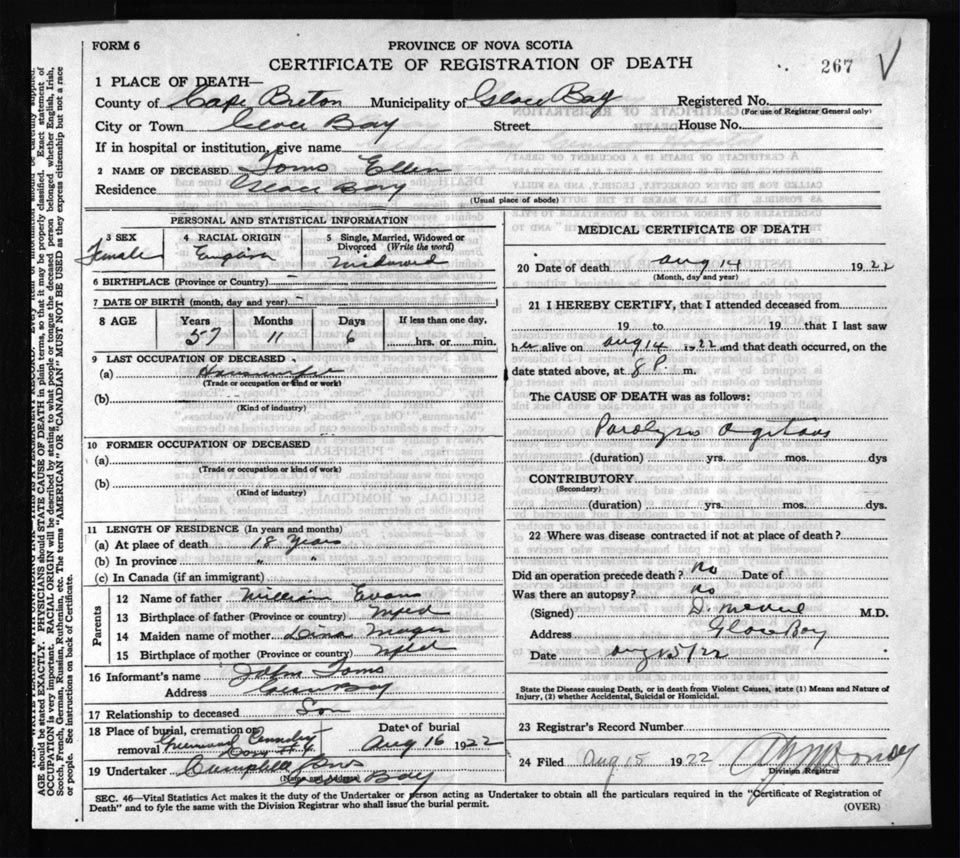 FORM 6
PROVINCE OF NOVA SCOTIA
CERTIFICATE OF REGISTRATION OF DEATH
267
1 PLACE OF DEATH—
County of Cape Breton Municipality of Glace Bay Registered No.
(For use of Registrar General only)
City or Town Glace Bay Street House No.
If in hospital or institution, give name
2 NAME OF DECEASED Toms Ellen
Residence Glace Bay
(Usual place of abode)
PERSONAL AND STATISTICAL INFORMATION
3 SEX
Female
4 RACIAL ORIGIN
English
5 Single, Married, Widowed or
Divorced (Write the word)
Widowed
6 BIRTHPLACE (Province or Country) –
7 DATE OF BIRTH (month, day and year) –
8 AGE
Years Months Days If less than one day,
57 11 6 hrs. or min.
9 LAST OCCUPATION OF DECEASED
(a) Housewife
(Trade or occupation or kind or work)
(b)
(Kind of industry)
10 FORMER OCCUPATION OF DECEASED
(a)
(Trade or occupation or kind of work)
(b)
(Kind of industry)
11 LENGTH OF RESIDENCE (In years and months)
(a) At place of death 18 Years
(b) In province " "
(c) In Canada (if an immigrant)
Parents
12 Name of father William Evans
13 Birthplace of father (Province or country) Nfld
14 Maiden name of mother Dina
15 Birthplace of mother (Province or country) Nfld
16 Informant's name John Toms
Address Glace Bay
17 Relationship to deceased Son
18 Place of burial, cremation or
removal Greenwood Cemetery
Date of burial
Aug 16 1922
19 Undertaker Campbell
(Name and Address)
Bay
MEDICAL CERTIFICATE OF DEATH
20 Date of death Aug 14 1922
(Month, day and year)
21 I HEREBY CERTIFY, that I attended deceased from
19 to 19 that I last saw
her alive on Aug 14 1922 and that death occurred, on the
date stated above, at 8 P. m.
The CAUSE OF DEATH was as follows:
Paralysis Agitans
(duration) yrs. mos. dys
CONTRIBUTORY
(Secondary)
(duration) yrs. mos. dys.
22 Where was disease contracted if not at place of death?
Did an operation precede death? No Date of
Was there an autopsy? No
(Signed) D. McNeil M.D.
Address Glace Bay
Date Aug 15/22
State the Disease causing Death, or in death from Violent Causes, state (1) Means and Nature of
Injury, (2) whether Accidental, Suicidal or Homicidal.
23 Registrar's Record Number
24 Filed Aug 15 1922
Division Registrar
SEC. 46—Vital Statistics Act makes it the duty of the Undertaker or person acting as Undertaker to obtain all the particulars required in the "Certificate of Registration of
Death" and to fyle the same with the Division Registrar who shall issue the burial permit.
(OVER)
AGE should be stated EXACTLY. PHYSICIANS should STATE CAUSE OF DEATH in plain terms, so that it may be properly classified. Exact statement of
OCCUPATION is very important. RACIAL ORIGIN will be described by stating to what people or tongue the deceased person belonged whether English, Irish,
Scotch, French, German, Russian, Ruthenian, etc. The terms "AMERICAN" OR "CANADIAN" MUST NOT BE USED as they express citizenship but not a race
or people. See instructions on back of Certificate.